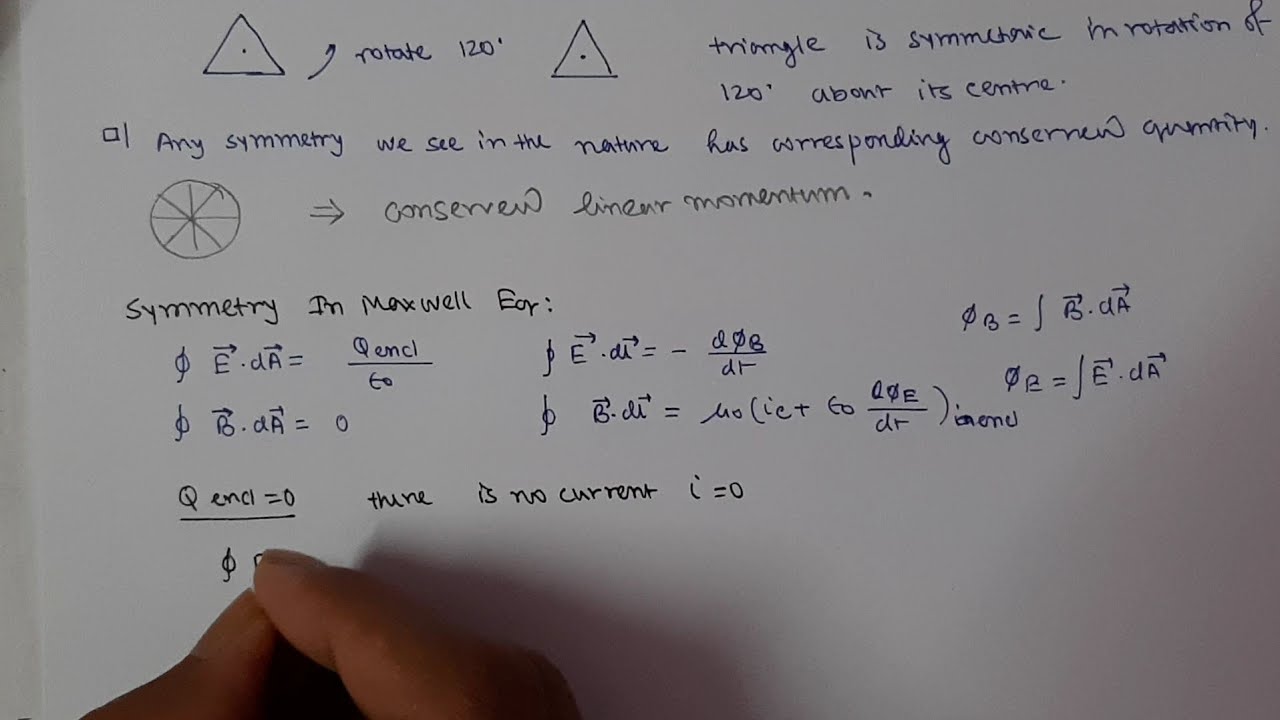 rotate 120° triangle is symmetric in rotation of
120° about its centre.
a) Any symmetry we see in the nature has corresponding conserved quantity.
⇒ conserved linear momentum.
Symmetry In Maxwell Eqn:
∮ E⃗.dA⃗ = Qencl/ε0 ∮ E⃗.dl⃗ = - dφB/dt φB = ∫ B⃗.dA⃗
∮ B⃗.dA⃗ = 0 ∮ B⃗.dl⃗ = μ0(ic + ε0 dφE/dt) φE = ∫E⃗.dA⃗
Q encl = 0 there is no current i = 0
∮